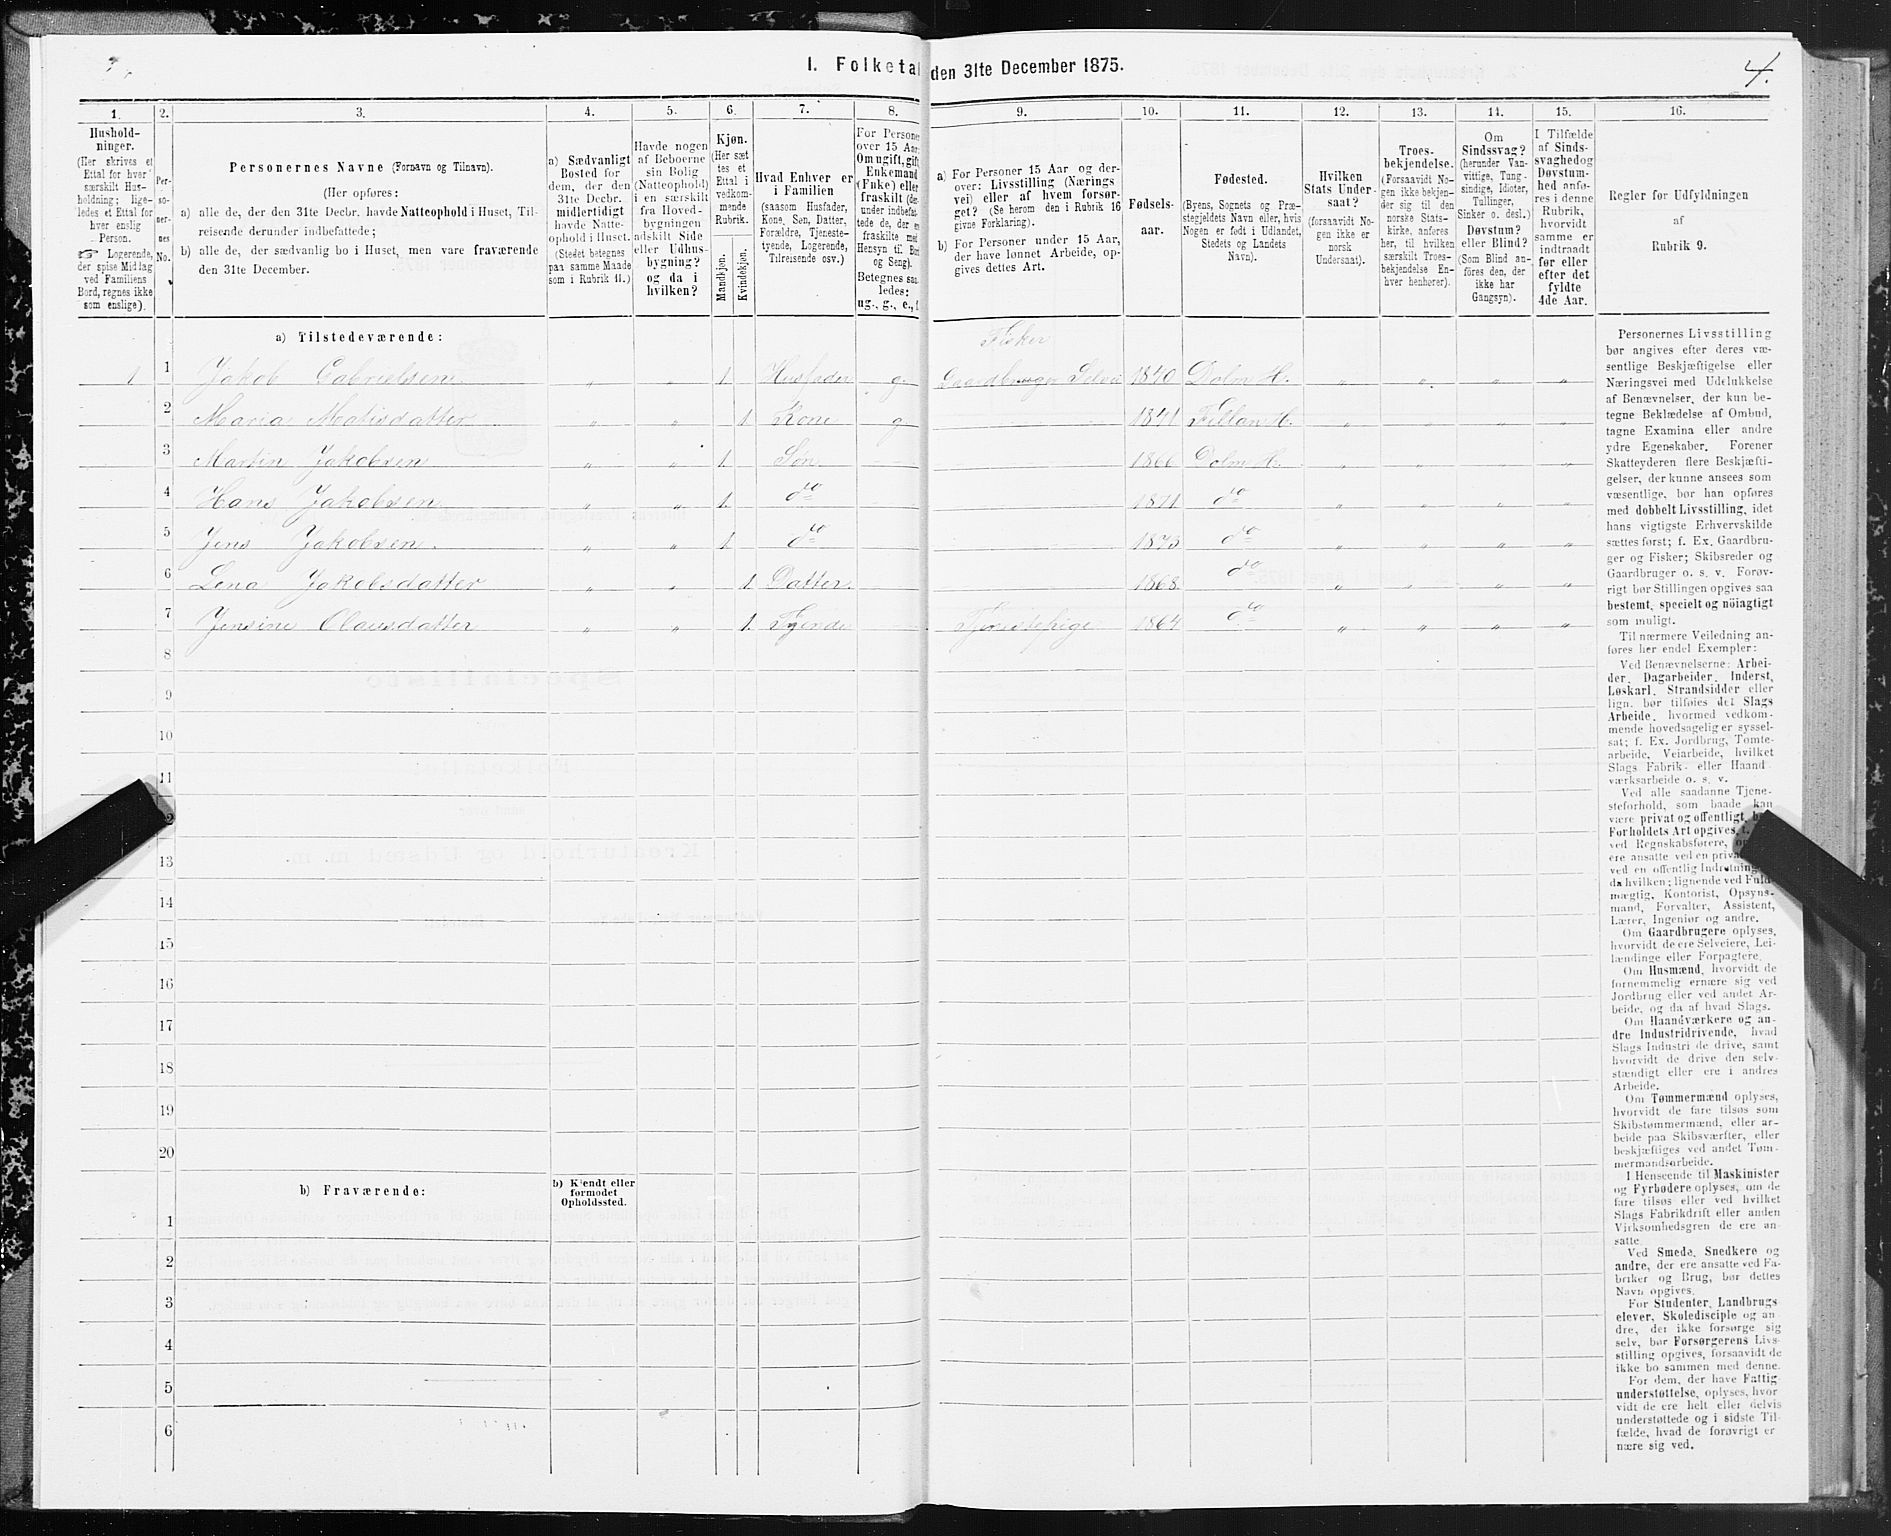 1. Folketal den 31te December 1875.
4.
1. 2. 3. 4. 5. 6. 7. 8. 9. 10. 11. 12. 13. 14. 15. 16.
Hushold-
ninger.
(Her skrives et
Ettal for hver
særskilt Hus-
holdning; lige-
ledes et Ettal for
hver enslig
Person.
☞ Logerende,
der spise Middag
ved Familiens
Bord, regnes ikke
som enslige).
Per-
so-
ner-
nes
No.
Personernes Navne (Fornavn og Tilnavn).
(Her opføres:
a) alle de, der den 31te Decbr. havde Natteophold i Huset, Til-
reisende derunder indbefattede;
b) alle de, der sædvanlig bo i Huset, men vare fraværende
den 31te December.
a) Sædvanligt
Bosted for
dem, der den
31te Decbr.
midlertidigt
havde Natte-
ophold i Huset.
(Stedet betegnes
paa samme Maade
som i Rubrik 11.)
Havde nogen
af Beboerne
sin Bolig
(Natteophold)
i en særskilt
fra Hoved-
bygningen
adskilt Side
eller Udhus-
bygning?
og da i
hvilken?
Kjøn.
(Her sæt
tes et
Ettal i
vedkom-
mende
Rubrik.
Mandkjøn.
Kvindekjøn.
Hvad Enhver er
i Familien
(saasom Husfader,
Kone, Søn, Datter,
Forældre, Tjeneste-
tyende, Logerende,
Tilreisende osv.)
For Persone
over 15 Aar:
Om ugift, gift
Enkemand
(Enke) eller
fraskilt (der-
under indbefat-
tede de, der er
fraskilte med
Hensyn til Bor
og Seng).
Betegnes saa
ledes:
ug., g., e.,
a) For Personer 15 Aar og der-
over: Livsstilling (Nærings
vei) eller af hvem forsør-
get? (Se herom den i Rubrik 16
givne Forklaring).
b) For Personer under 15 Aar,
der have lønnet Arbeide, op-
gives dettes Art.
Fødsels-
aar.
Fødested.
(Byens, Sognets og Præ-
stegjeldets Navn eller, hvis
Nogen er født i Udlandet,
Stedets og Landets
Navn).
Hvilken
Stats Under-
saat?
(forsaavidt No-
gen ikke er
norsk
Undersaat).
Troes-
bekjendelse.
(Forsaavidt No-
gen ikke bekjen-
der sig til den
norske Stats-
kirke, anføres
her, til hvilken
særskilt Troes-
bekjendelse En-
hver henhører).
Om
Sindssvag?
(herunder Van-
vittige, Tung-
sindige, Idioter,
Tullinger,
Sinker o. desl.)
Døvstum?
eller Blind?
(Som Blind an-
føres den, der
ikke har
Gangsyn).
I Tilfælde
af Sinds-
svaghed og
Døvstum-
hed anfø-
res i denne
Rubrik,
hvorvidt
samme er
indtraadt
før eller
efter det
fyldte
4de Aar.
Regler før Udfyldningen
af
Rubrik 9.
a) Tilstedeværende:
Fisker
1 1 Jakob Gabrielsen „ „ 1. Husfader g. Gaardbruger Selvei 1840 Dolm H. „ „ „ „
2 Maria Matisdatter „ „ 1. Kone g. 1841 Fillan H. „ „ „ „
3 Martin Jakobsen „ „ 1. Søn 1866 Dolm H. „ „ „ „
4 Hans Jakobsen „ „ 1. do 1871 do „ „ „ „
5 Jens Jakobsen. „ „ 1. do 1873 do „ „ „ „
6 Lena Jakobsdatter „ „ 1. Datter. 1868. do „ „ „ „
7 Jensine Olausdatter „ „ 1. Tjende Tjenestepige 1864 do „ „ „ „
8
9
10
11
13
14
15
16
17
18
19
20
b) Fraværende:
b) Kjendt eller
formodet
Opholdssted.
1
2
3
4
5
6
Personernes Livsstilling
bør angives efter deres væ-
sentlige Beskjæftigelse eller
Næringsvei med Udelukkelse
af Benævnelser, der kun be-
tegne Beklædelse af Ombud,
tagne Examina eller andre
ydre Egenskaber. Forener
Skatteyderen flere Beskjæfti-
gelser, der kunne ansees som
væsentlige, bør han opføres
med dobbelt Livsstilling, idet
hans vigtigste Erhvervskilde
sættes først; f. Ex. Gaardbru-
ger og Fisker; Skibsreder og
Gaardbruger o. s. v. Forøv-
rigt bør Stillingen opgives saa
bestemt, specielt og nöiagtigt
som muligt.
Til nærmere Veiledning an-
føres her endel Exempler:
Ved Benævnelserne: Arbei-
der, Dagarbeider, Inderst,
Løskarl, Strandsidder eller
lign. bør tilføies det Slags
Arbeide, hvormed vedkom-
mende hovedsagelig er syssel-
sat; f. Ex. Jordbrug, Tomte-
arbeide, Veiarbeide, hvilket
Slags Fabrik- eller Haand
værksarbeide o. s. v.
Ved alle saadanne Tjene-
steforhold, som baade kan
være privat og offentligt, bør
Forholdets Art opgives,
ved Regnskabsførere,
ere ansatte ved en privat
ved en offentlig Indretning
da hvilken; lignende ved Fuld-
mægtig, Kontorist, Opsyns-
mand, Forvalter, Assistent,
Lærer, Ingeniør og andre.
Om Gaardbrugere oplyses,
hvorvidt de ere Selveiere, Lei-
lændinge eller Forpagtere.
Om Husmænd, hvorvidt de
fornemmelig ernære sig ved
Jordbrug eller ved andet Ar-
beide, og da af hvad Slags.
Om Haandværkere og an-
dre Industridrivende, hvad
Slags Industri de drive, samt
hvorvidt de drive den selv-
stændigt eller ere i andres
Arbeide.
Om Tømmermænd oplyses,
hvorvidt de fare tilsøs som
Skibstømmermænd, eller ar-
beide paa Skibsværfter, eller
beskjæftiges ved andet Tøm-
mermandsarbeide.
I Henseende til Maskinister
og Fyrbødere oplyses, om de
fare tilsøs eller ved hvilket
Slags Fabrikdrift eller anden
Virksomhedsgren de ere an-
satte.
Ved Smede, Snedkere og
andre, der ere ansatte ved Fa-
briker og Brug, bør dettes
Navn opgives.
For Studenter, Landbrugs
elever, Skoledisciple og an
dre, der ikke forsørge sig
selv, bør Forsørgerens Livs-
stilling opgives, forsaavidt de
ikke bo sammen med denne.
For dem, der have Fattig-
understøttelse, oplyses, hvor
vidt de ere helt eller delvis
understøttede og i sidste Til-
fælde, hvad de forøvrigt er
nære sig ved.